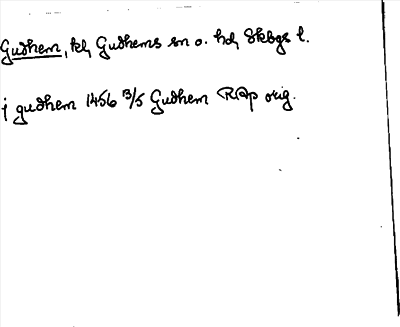 Gudhem, kh, Gudhems sn o. hd, Skbgs l.
j gudhem 1456 13/5 Gudhem RAp orig.